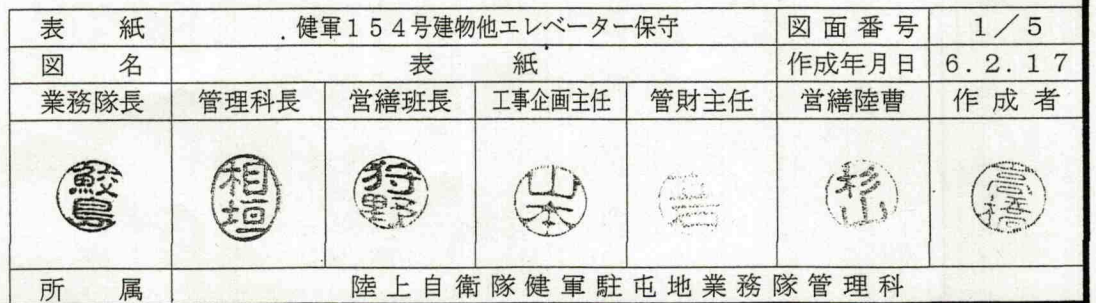 表紙 健軍154号建物他エレベーター保守 図面番号 1/5
図名 表紙 作成年月日 6.2.17
業務隊長 管理科長 営繕班長 工事企画主任 管財主任 営繕陸曹 作成者
鮫島 相垣 狩野 山本 岩 杉山 高橋
所属 陸上自衛隊健軍駐屯地業務隊管理科